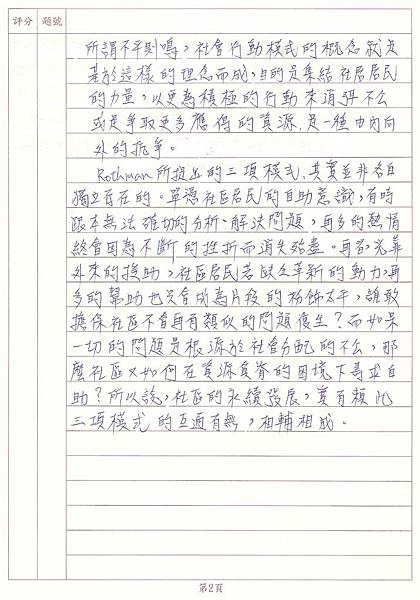 評分 題號
所謂不平則鳴，社會行動模式的概念就是
基於這樣的理念而成，目的是集結社區居民
的力量，以更為積極的行動來消弭不公
或是爭取更多應得的資源，是一種由內向
外的抗爭。
Rothman所提出的三項模式，其實並非各自
獨立存在的。單憑社區居民的自助意識，有時
跟本無法確切的分析、解決問題，再多的熱情
終會因為不斷的挫折而消失殆盡。再者，光靠
外來的援助，社區居民若缺乏革新的動力，再
多的幫助也只會成為片段的粉飾太平，誰敢
擔保社區不會再有類似的問題復生？而如果
一切的問題是根源於社會分配的不公，那
麼社區又如何在資源貧脊的困境下尋求自
助？所以說，社區的永續發展，實有賴此
三項模式的互通有無，相輔相成。
第2頁